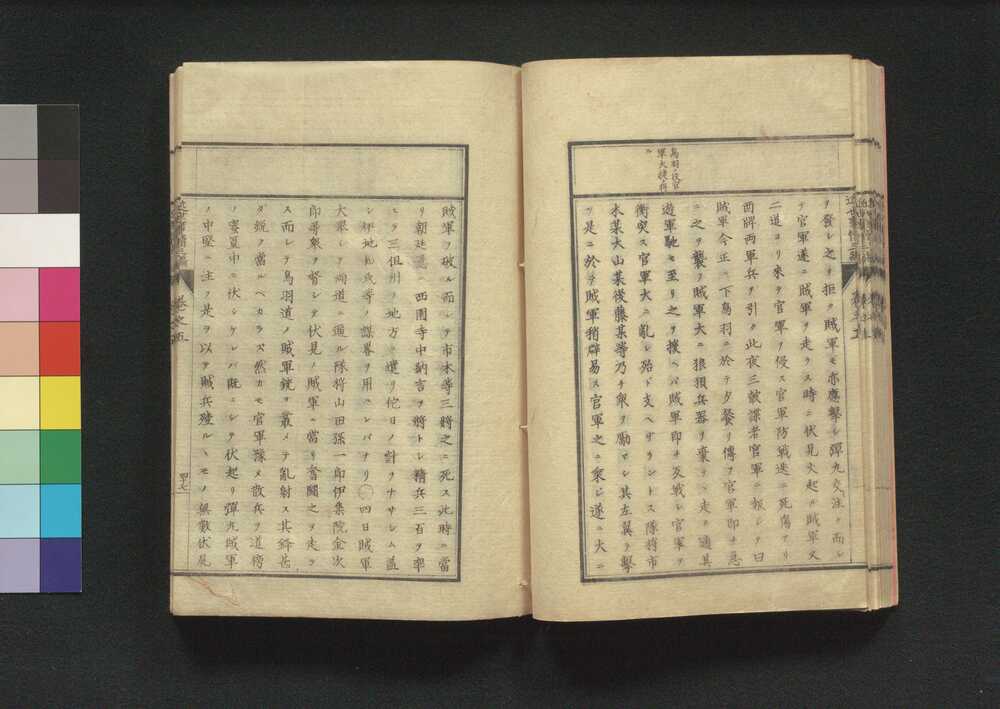 鳥羽ノ役官
軍大捷ス
ヲ發シ之ヲ拒ク賊軍モ亦應擊シ彈丸交注ク而シ
テ官軍遂ニ賊軍ヲ走ラス時ニ伏見火起ル賊軍又
二道ヨリ來テ官軍ヲ侵ス官軍防戰迭ニ死傷アリ
酉牌兩軍兵ヲ引ク此夜三鼓諜者官軍ニ報シテ曰
賊軍今正ニ下鳥羽ニ於テ夕餐ヲ傳フ官軍即チ急
ニ之ヲ襲フ賊軍大ニ狼狽兵器ヲ棄テ走ル適其
遊軍馳セ至リ之ヲ援ヘバ賊軍即チ反戰シ官軍ヲ
衝突ス官軍大ニ亂レ殆ド支ヘザラントス隊將市
木某大山某後藤某等乃チ衆ヲ勵マシ其左翼ヲ擊
ツ是ニ於テ賊軍稍辟易ス官軍之ニ乘シ遂ニ大ニ
賊軍ヲ破ル而シテ市木等三將之ニ死ス此時ニ當
リ朝廷 西園寺中納言ヲ將トシ精兵三百ヲ率
ヒテ三 ノ地方ニ遣リ佗日ノ計ヲナサシム蓋
シ伊地知氏等ノ謀畧ヲ用ヒシバナリ〇四日賊軍
大擧シテ兩道ニ逼ル隊將山田孫一郎伊集院金次
郎等衆ヲ督シテ伏見ノ賊軍ニ當リ奮鬪之ヲ走ラ
ス而シテ鳥羽道ノ賊軍銃ヲ叢メテ亂射ス其鋒甚
ダ銳ク當ルベカラズ然カモ官軍豫メ散兵ヲ道傍
ノ叢篁中ニ伏シケレバ既ニシテ伏起リ彈丸賊軍
ノ中堅ニ注ク是ヲ以テ賊兵殪ルヽモノ無數伏屍
卷之五
四七